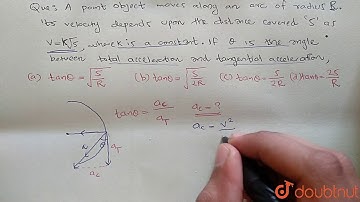 Ques: A point object moves along an arc of radius R.
Its velocity depends upon the distance covered 'S' as
V = K√S where K is a constant. If θ is the angle
between total acceleration and tangential acceleration,
(a) tanθ = √(S/R) (b) tanθ = √(S/2R) (c) tanθ = S/2R (d) tanθ = 2S/R
tanθ = ac/aT ac = ?
ac = v²/
a θ aT
ac
doubtnut